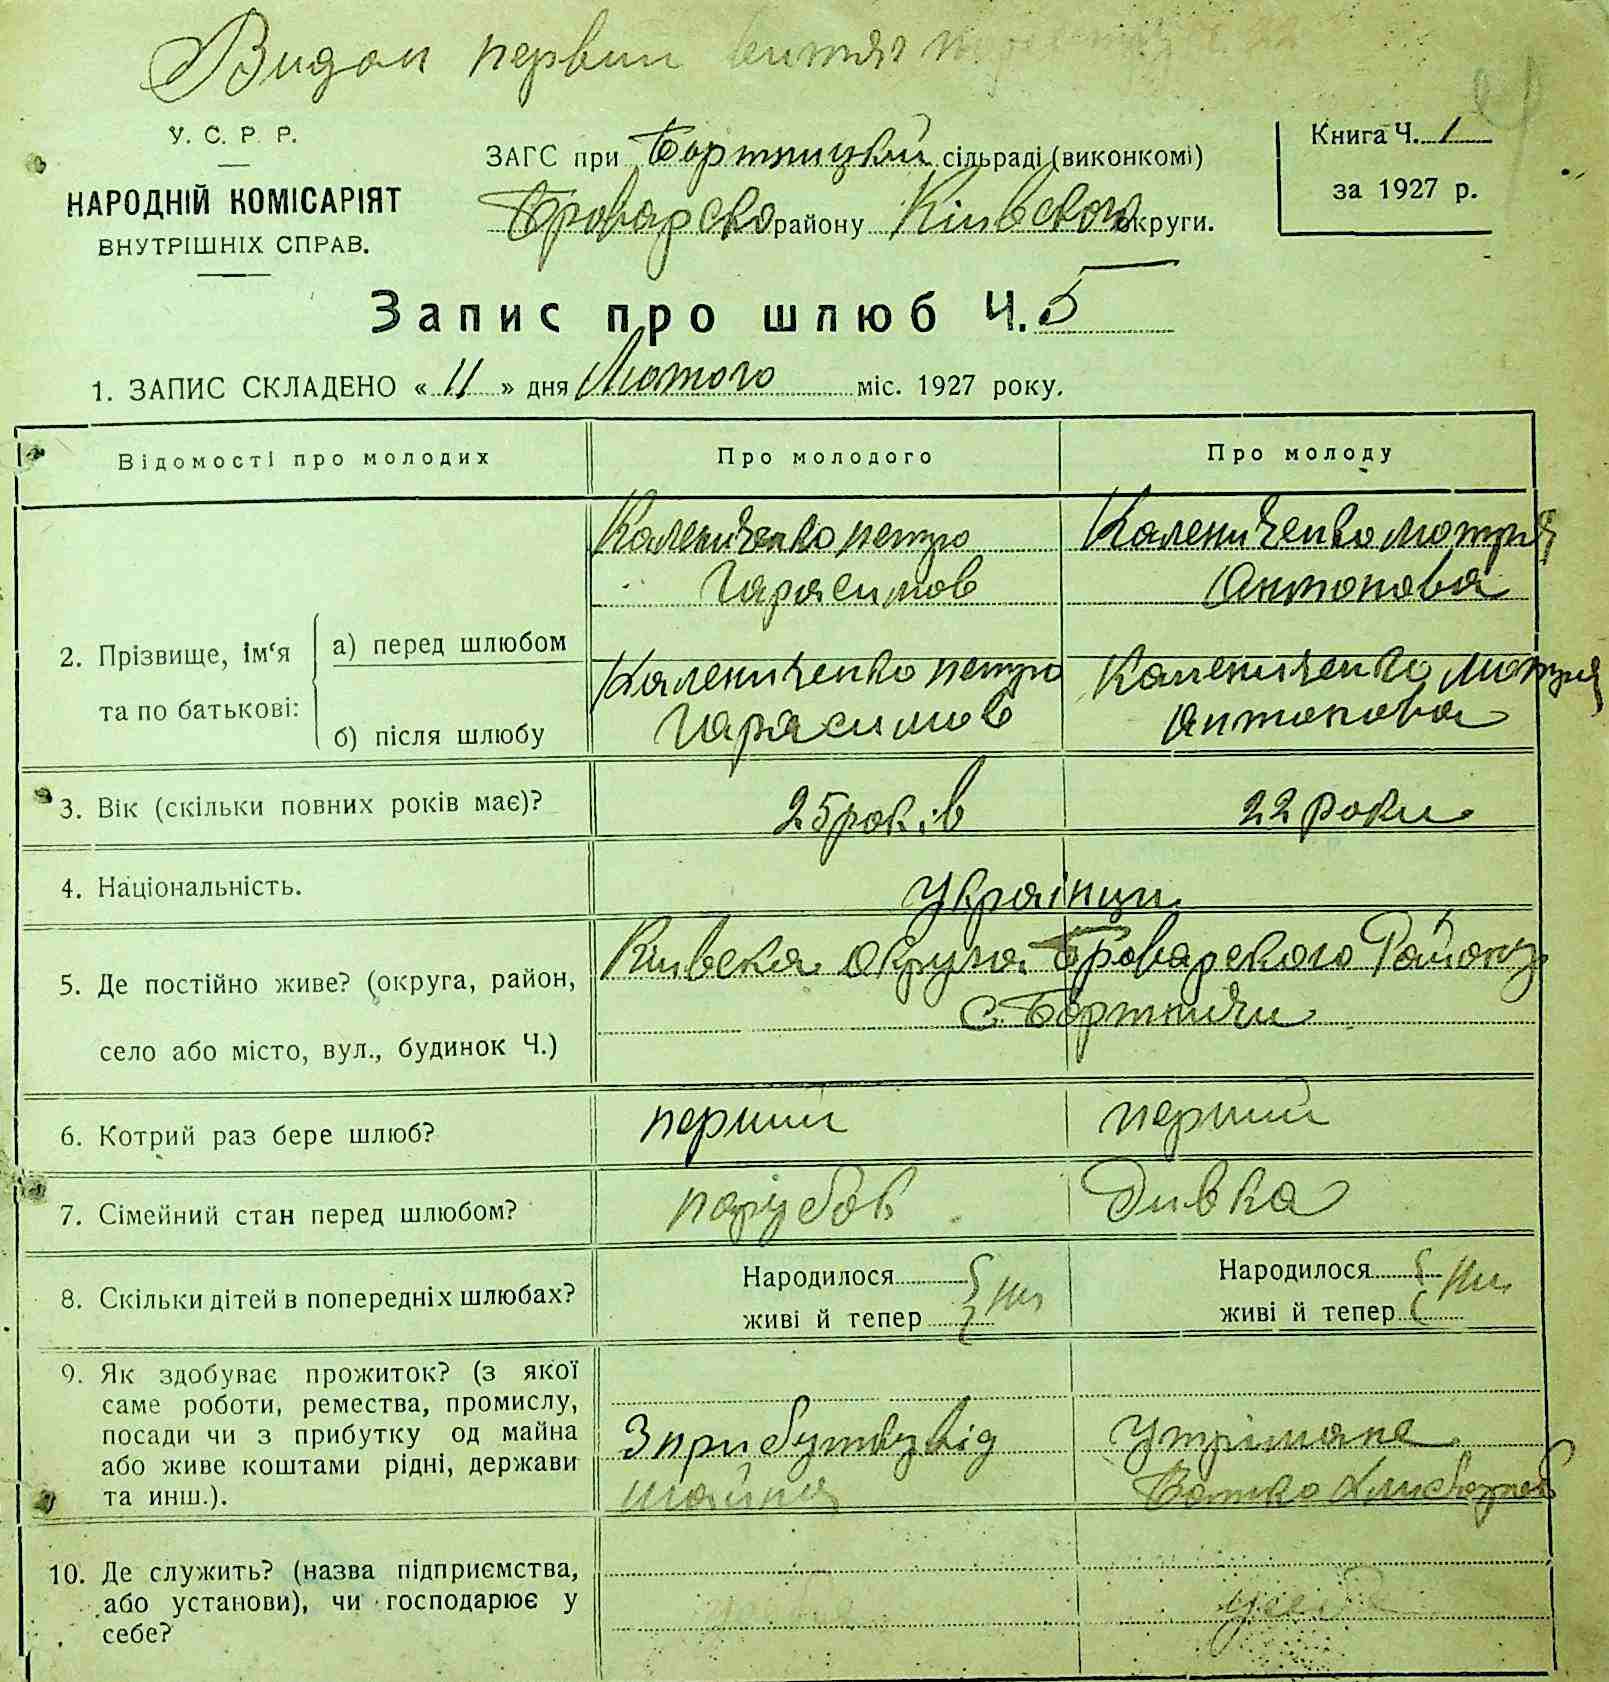 Видан первии витяг
У. С. Р. Р.
НАРОДНІЙ КОМІСАРІЯТ
ВНУТРІШНІХ СПРАВ.
ЗАГС при Бортницкій сільраді (виконкомі)
Броварского району Київского округи.
Книга Ч. 1
за 1927 р.
Запис про шлюб Ч. 5
1. ЗАПИС СКЛАДЕНО « 11 » дня Лютого міс. 1927 року.
Відомості про молодих
Про молодого
Про молоду
2. Прізвище, ім'я та по батькові:
а) перед шлюбом
Калениченко петро
Гарасимов
Калениченко мотря
Антонова
б) після шлюбу
Калениченко петро
Гарасимов
Калениченко мотря
Антонова
3. Вік (скільки повних років має)?
25 років
22 роки
4. Національність.
Українци
5. Де постійно живе? (округа, район,
село або місто, вул., будинок Ч.)
Київска округа Броварского Району
с. Бортничи
6. Котрий раз бере шлюб?
перший
перший
7. Сімейний стан перед шлюбом?
парубок
Дивка
8. Скільки дітей в попередніх шлюбах?
Народилося
живі й тепер
Народилося
живі й тепер
9. Як здобуває прожиток? (з якої
саме роботи, ремества, промислу,
посади чи з прибутку од майна
або живе коштами рідні, держави
та инш.).
З прибутку від
майна
Утримане
Батько
10. Де служить? (назва підприємства,
або установи), чи господарює у
себе?